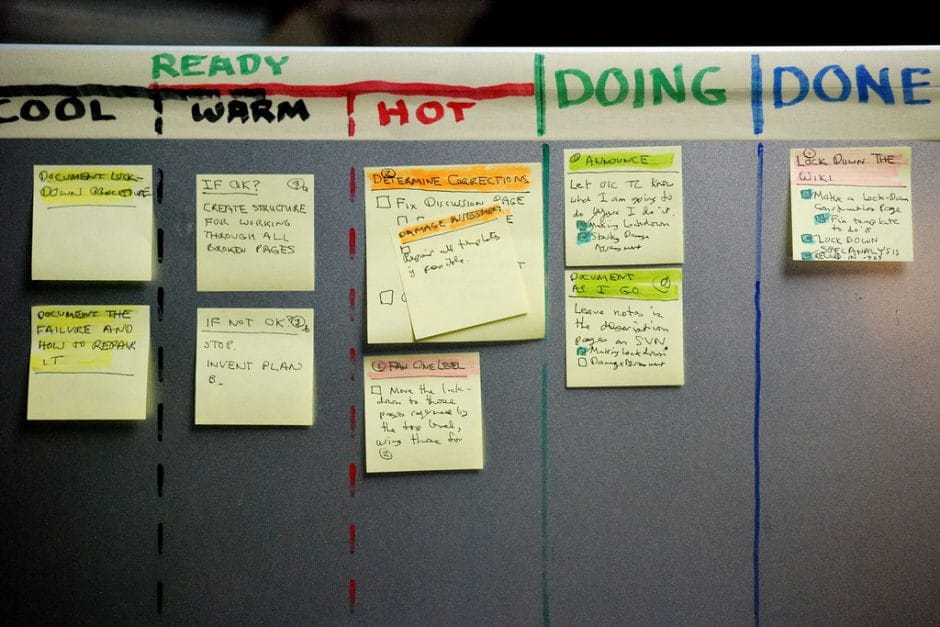 READY
COOL
WARM
HOT
DOING
DONE
DOCUMENT LOCK-
DOWN PROCEDURE
DOCUMENT THE
FAILURE AND
HOW TO REPAIR
IT
IF OK?
CREATE STRUCTURE
FOR WORKING
THROUGH ALL
BROKEN PAGES
IF NOT OK?
STOP.
INVENT PLAN
B.
DETERMINE CORRECTIONS
FIX DISCUSSION PAGE
DAMAGE ASSESSMENT
Repair all templates
if possible.
① FAN ONE LEVEL
Move the lock-
down to those
pages referenced by
the top level,
using those for
②
ANNOUNCE
Let OIC TZ know
what I am going to
do before I do it.
Making Lockdown
Starting Damage
Assessment
DOCUMENT
AS I GO
Leave notes in
the description
pages on SVN
Making Lockdown
Damage Assessment
LOCK DOWN THE
WIKI
Make a Lock-Down
Construction Page
Fix template
to do it
LOCK DOWN
SPECANALYSIS